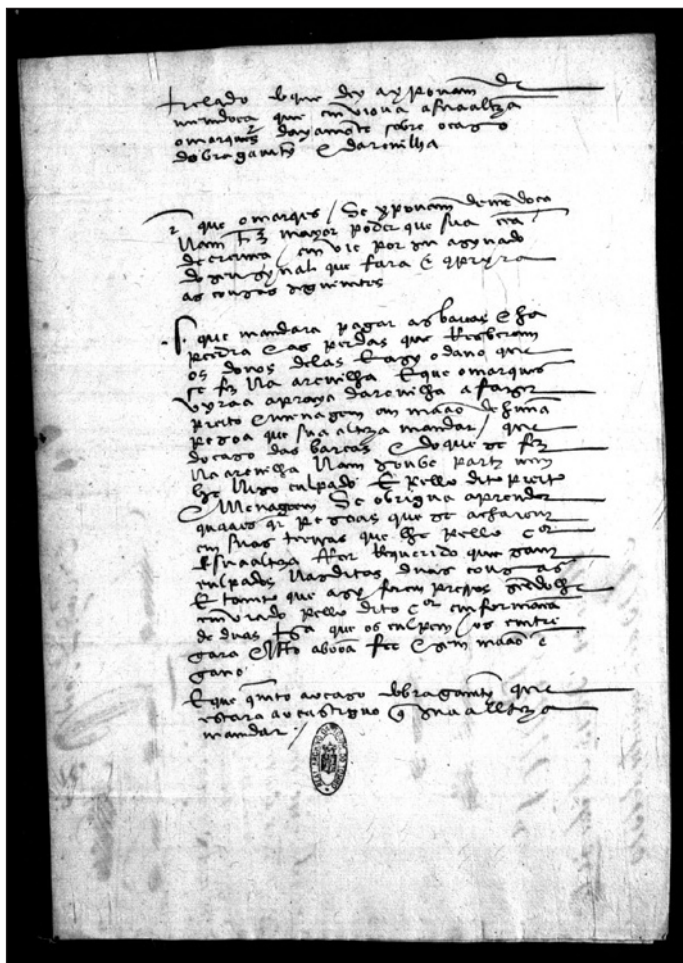 trelado do que dey a yxpouam de
mendoça que emviou a sua alteza
o marques dayamote sobre o caso
do bragamtim e darenilha
que o marques / Se xpouam de mẽdoça
Nam tẽ mayor poder que sua cẽa
de crença / emvie por seu asynado
do geral que fara e comprira
as cousas seguintes
que mandara pagar as barcas e ha
pedra e as perdas que Reçeberam
os donos delas E asy o dano que
se fez Na arenilha E que o marques
vyraa a praya darenilha a fazer
preito e menagem em mãao de huũa
pesoa que sua alteza mandar / que
do caso das barcas e do que se fez
na arenilha Nam soube parte nem
he Niso culpado E pello dito preito
e Menagem Se obrigua a prender
quaaes qr pesoas que se acharem
em suas terras que lhe pello cor
de sua alteza for Requerido que sam
culpados Nas ditas duas cousas
E tamto que asy forem presos sẽdolhe
emviado pello dito cor emformaçã
de duas tas que os culpem / os emtre
gara e isto a booa fee e sem maao e
gano
E que quãto ao caso do bragamtim que
estara ao castiguo q sua allteza
mandar /